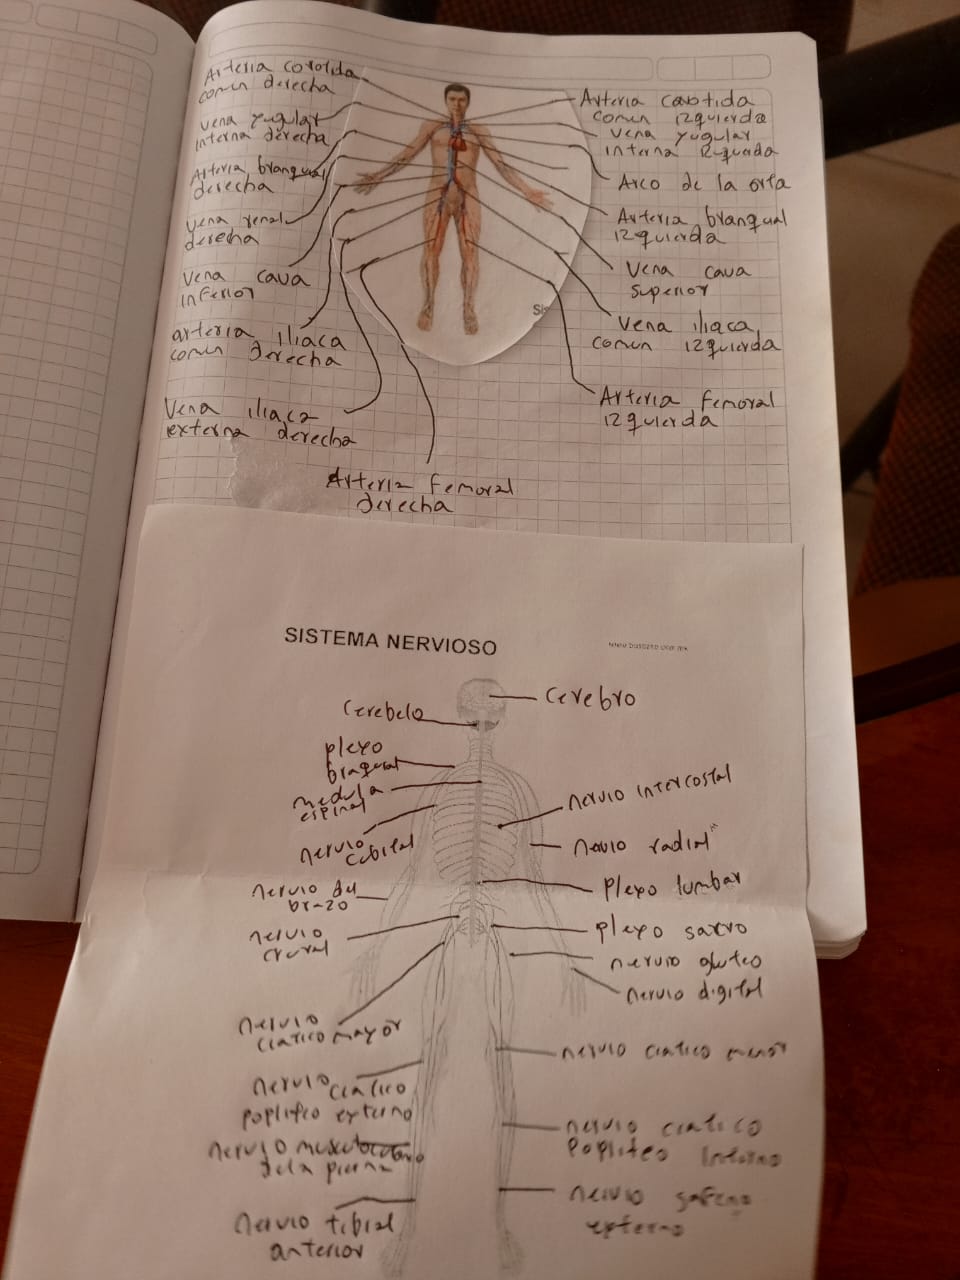 Arteria carotida
comun derecha
vena yugular
interna derecha
Arteria branquial
derecha
vena renal
derecha
Vena cava
inferior
arteria iliaca
comun derecha
Vena iliaca
externa derecha
Arteria femoral
derecha
Arteria carotida
comun izquierda
vena yugular
interna
Arco de la orta
Arteria branqual
izquierda
Vena cava
superior
Vena iliaca
comun izquierda
Arteria femoral
izquierda
Sis
SISTEMA NERVIOSO
cerebro
cerebelo
plexo
braquial
medula
espinal
nervio intercostal
nervio
cubital
nervio radial
nervio del
brazo
plexo lumbar
nervio
crural
plexo sacro
nervio gluteo
nervio digital
nervio
ciatico mayor
nervio ciatico menor
nervio ciatico
popliteo externo
nervio ciatico
popliteo interno
nervio musculocutaneo
de la pierna
nervio safeno
externo
nervio tibial
anterior